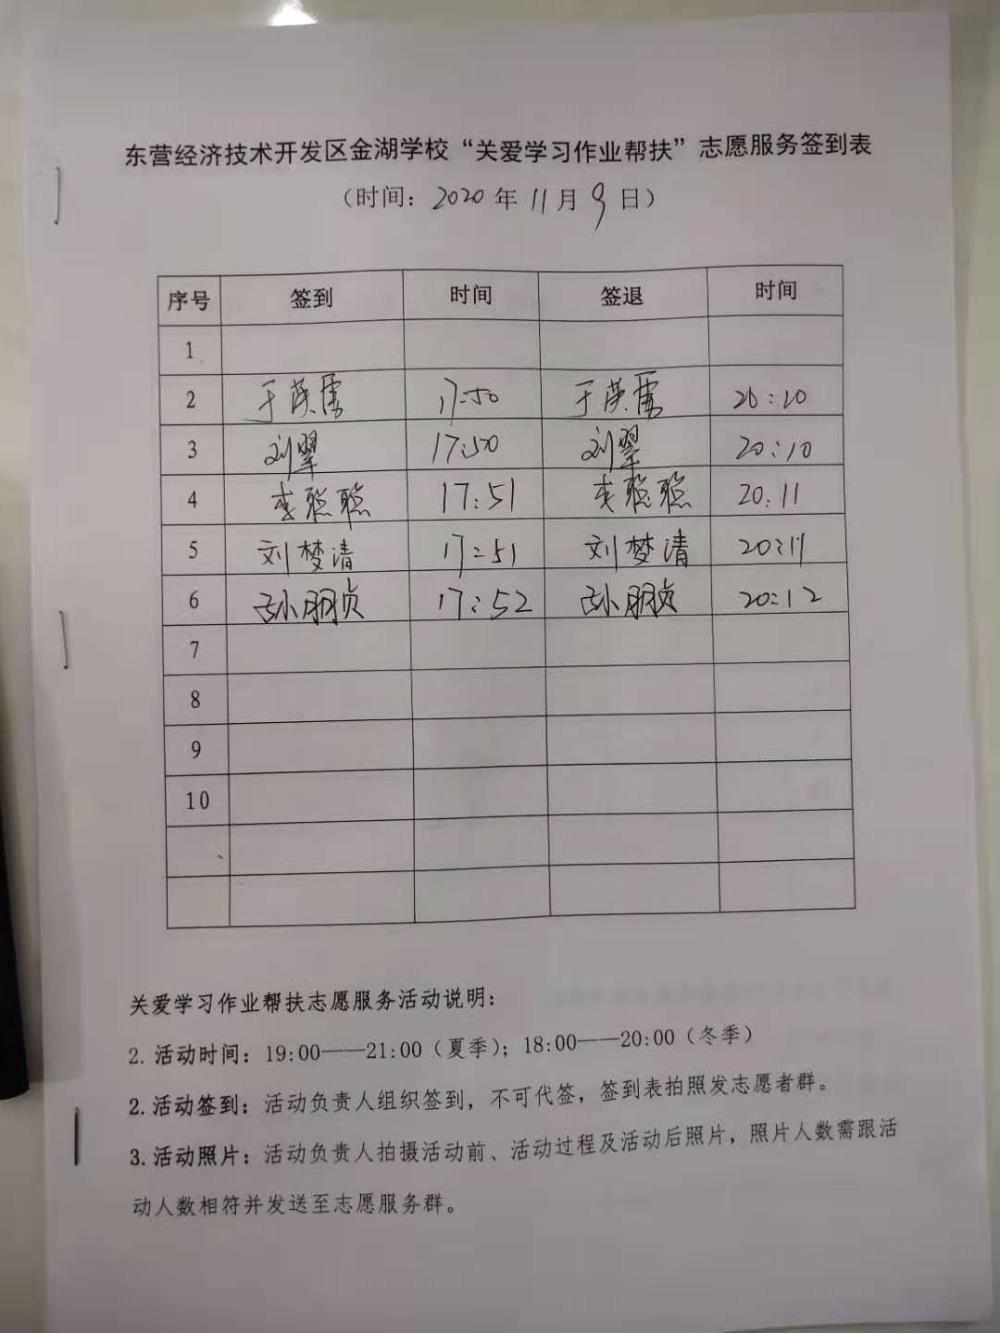 东营经济技术开发区金湖学校“关爱学习作业帮扶”志愿服务签到表
（时间：2020年11月9日）
序号 签到 时间 签退 时间
1
2 于英雪 17:50 于英雪 20:10
3 刘翠 17:50 刘翠 20:10
4 李聪聪 17:51 李聪聪 20:11
5 刘梦清 17:51 刘梦清 20:11
6 孙朋贞 17:52 孙朋贞 20:12
7
8
9
10
关爱学习作业帮扶志愿服务活动说明：
2. 活动时间：19:00——21:00（夏季）；18:00——20:00（冬季）
2. 活动签到：活动负责人组织签到，不可代签，签到表拍照发志愿者群。
3. 活动照片：活动负责人拍摄活动前、活动过程及活动后照片，照片人数需跟活
动人数相符并发送至志愿服务群。